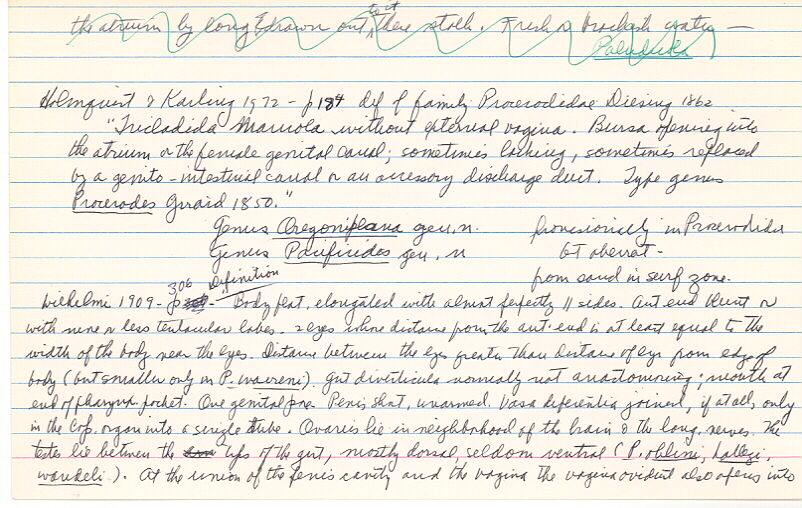 the atrium by long & drawn out to it these stalk. Fresh or brackish water —
Paludicola
Holmquist & Karling 1972 - p 184 def of family Procerodidae Diesing 1862
"Tricladida Maricola without external vagina. Bursa opening into
the atrium or the female genital canal; sometimes lacking, sometimes replaced
by a genito-intestinal canal or an accessory discharge duct. Type genus
Procerodes Girard 1850."
Genus Oregoniplana gen. n. provisionally in Procerodidae
Genus Pacificides gen. n but aberrat -
from sand in surf zone.
Wilhelmi 1909 - p 306 Definition - Body flat, elongated with almost perfectly || sides. Ant end blunt or
with more or less tentacular lobes. 2 eyes whose distance from the ant. end is at least equal to the
width of the body near the eyes. Distance between the eyes greater than distance of eye from edge of
body (but smaller only in P. wavreni). Gut diverticula normally not anastomosing; mouth at
end of pharynx pocket. One genital pore. Penis short, unarmed. Vasa deferentia joined, if at all, only
in the cop. organ into a single tube. Ovaries lie in neighborhood of the brain & the long. nerves. The
testes lie between the tips of the gut, mostly dorsal, seldom ventral (P. ohlini, hallezi,
wandeli). At the union of the penis cavity and the vagina the vagina oviduct also opens into